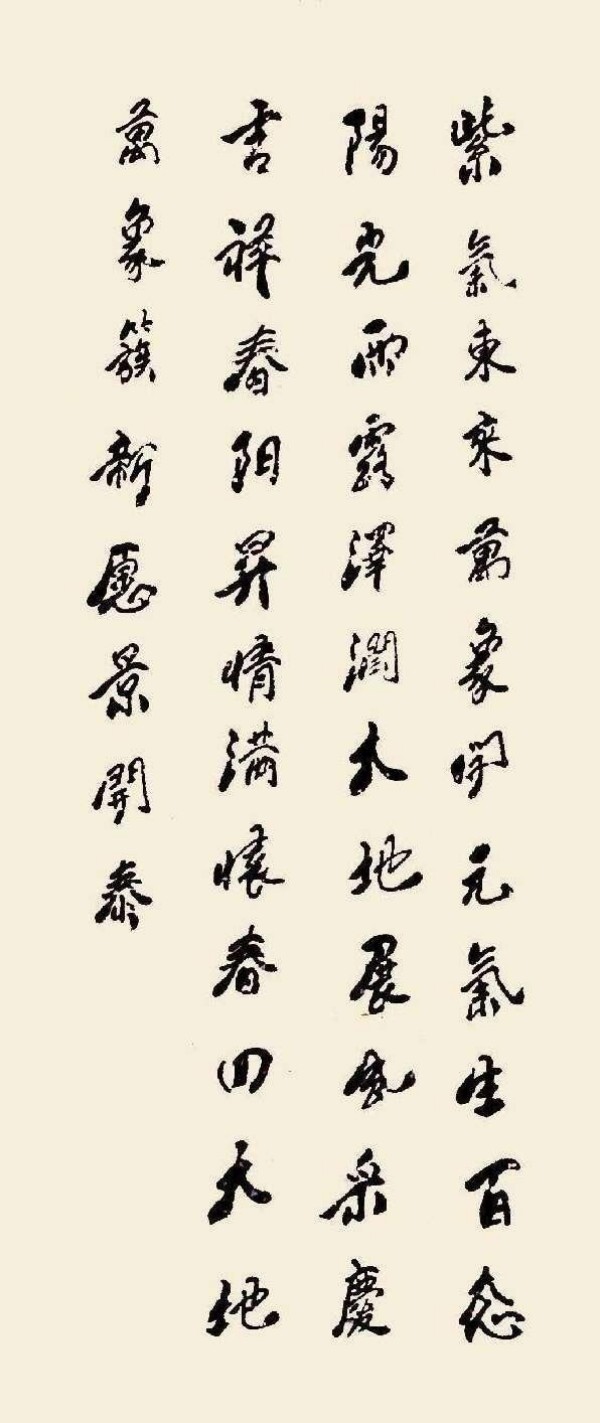 紫氣東來萬象開元氣生百态
陽光雨露澤潤大地展風采慶
吉祥春阳昇情满懷春回天地
萬象簇新愿景開泰